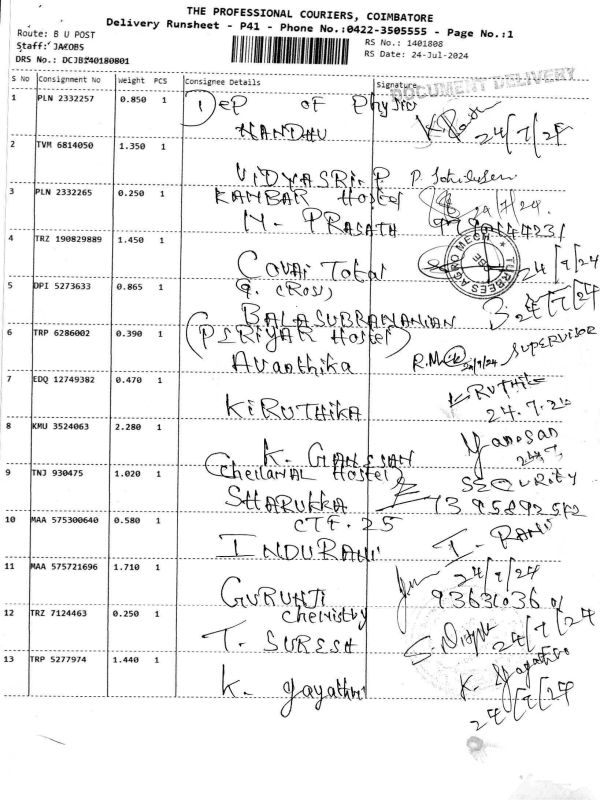 THE PROFESSIONAL COURIERS, COIMBATORE
Delivery Runsheet - P41 - Phone No.:0422-3505555 - Page No.:1
Route: B U POST
Staff: JACOBS
DRS No.: DCJB140180801
RS No.: 1401808
RS Date: 24-Jul-2024
S No Consignment No Weight PCS Consignee Details Signature
DOCUMENT DELIVERY
1 PLN 2332257 0.850 1 DEP OF Physic
NANDHU 24/7/24
2 TVM 6814050 1.350 1
VIDYASRI.P P.
3 PLN 2332265 0.250 1 KANBAR Hostel
M. PRASATH
4 TRZ 190829889 1.450 1
Covai Total 24/7/24
5 DPI 5273633 0.865 1 9. CROSS
BALASUBRAMANIAN B. 24/7/24
6 TRP 6286002 0.390 1 (PERIYAR Hostel)
Avanthika SUPERVISOR
7 EDQ 12749382 0.470 1 KRUTHIK
KIRUTHIKA 24.7.24
8 KMU 3524063 2.280 1
K. GANESAN
9 TNJ 930475 1.020 1 Hostel SEQURITY
SHARUKKA
10 MAA 575300640 0.580 1 CTF.25
INDURANI I. RANI
11 MAA 575721696 1.710 1 24/7/24
GURUNTI
12 TRZ 7124463 0.250 1 Chemistry
T. SURESH 24/7/24
13 TRP 5277974 1.440 1
K. gayathri K.
24/7/24